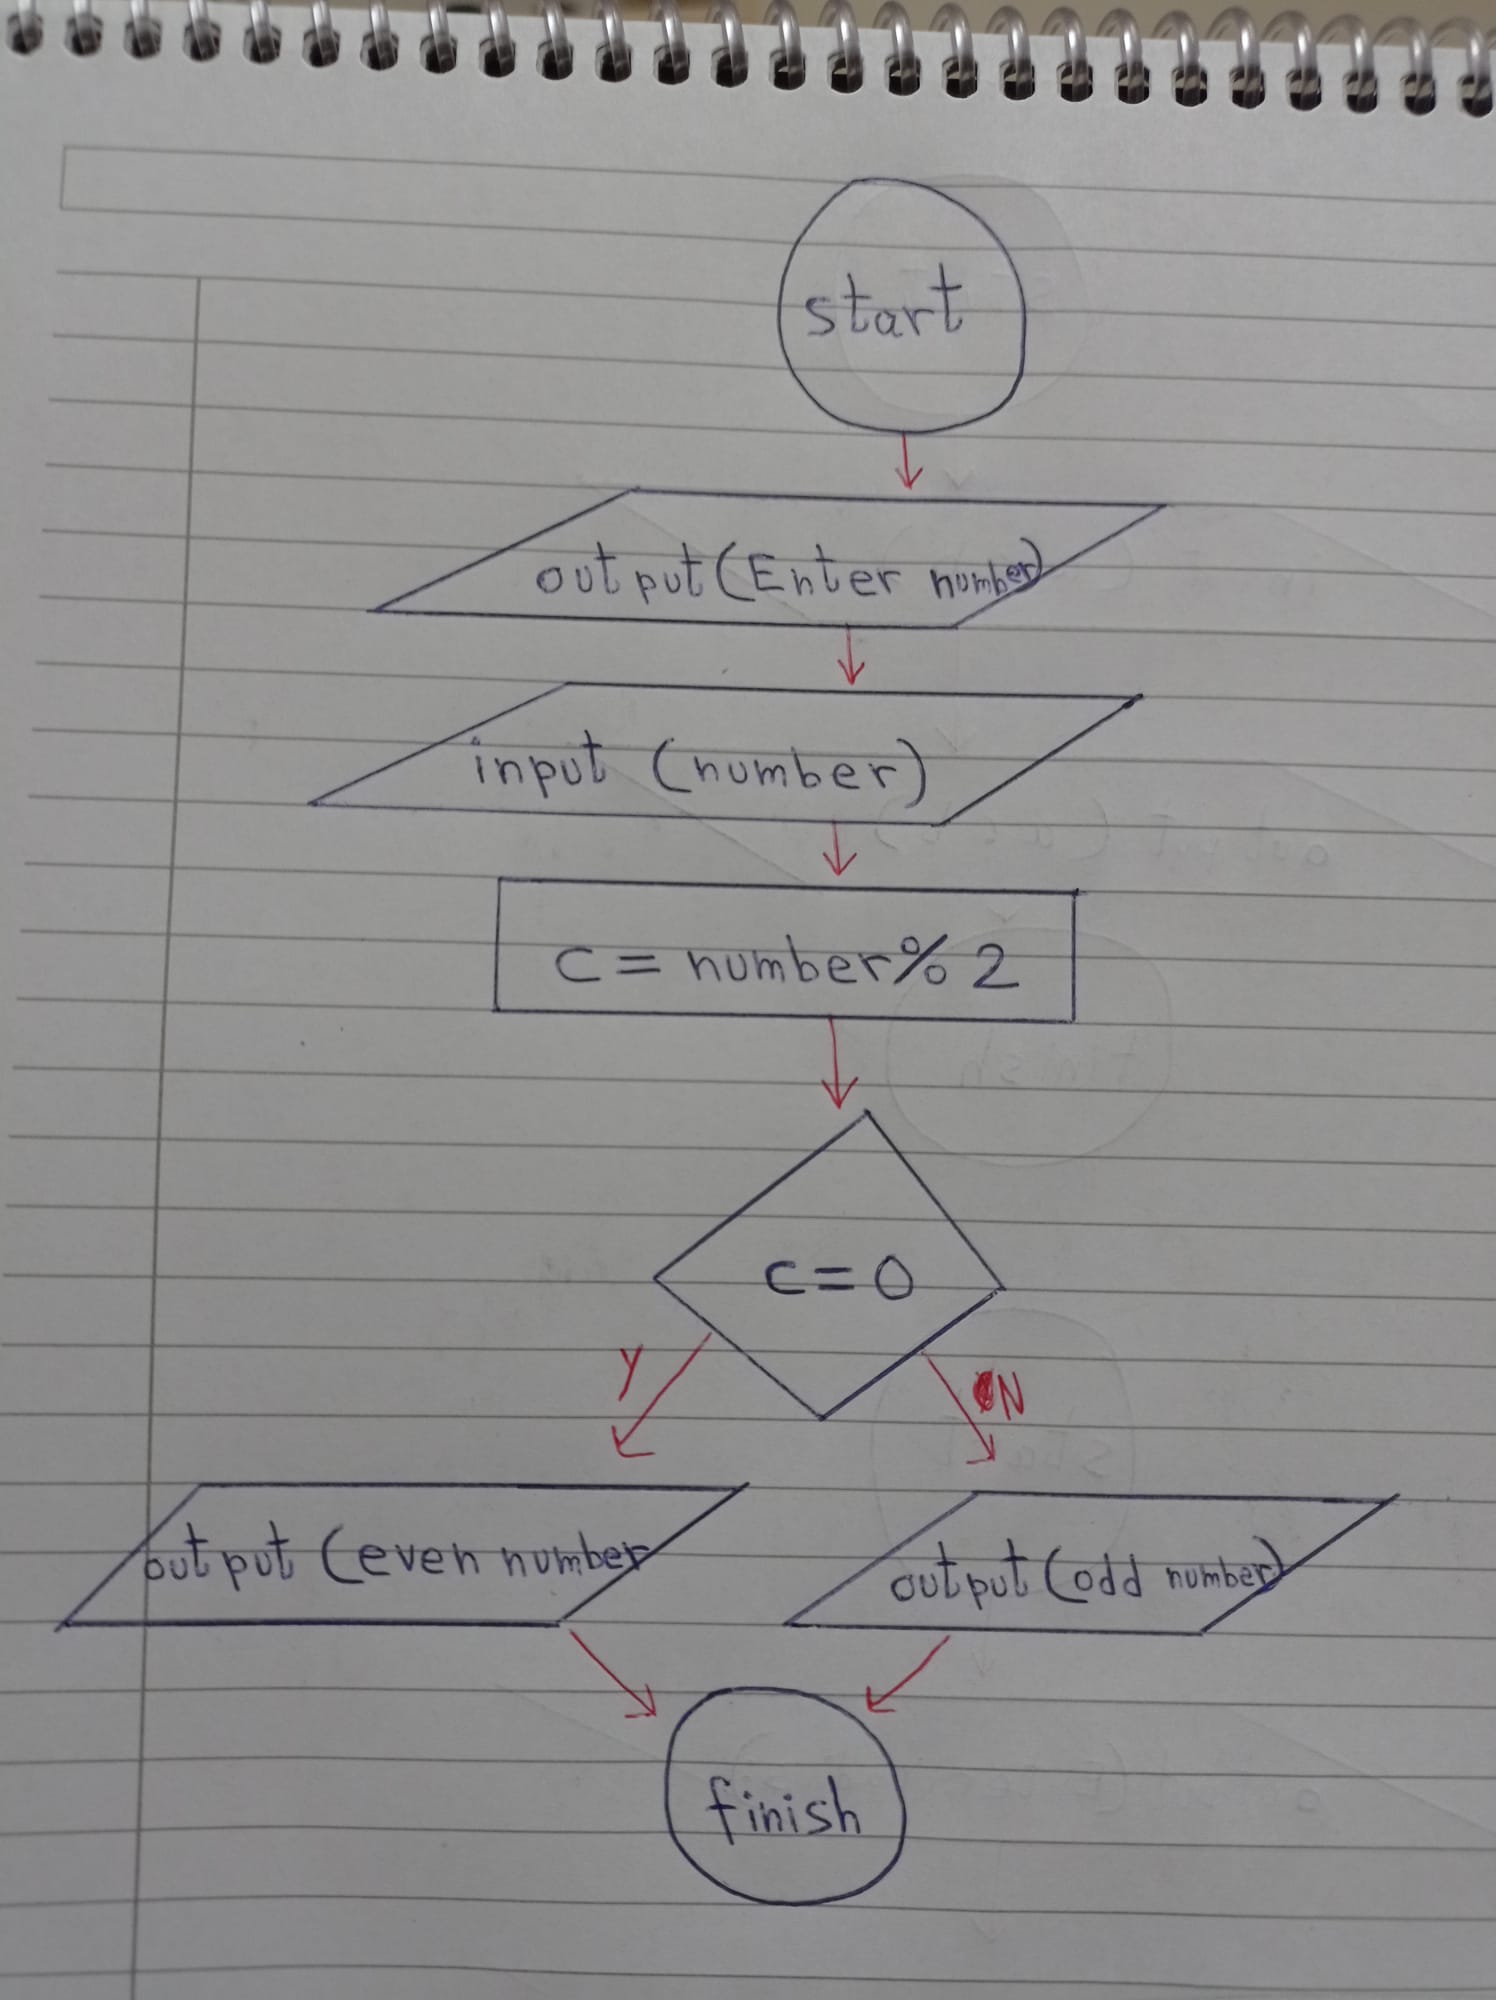 start
output (Enter number)
input (number)
c = number % 2
c = 0
Y
N
output (even number
output (odd number)
finish